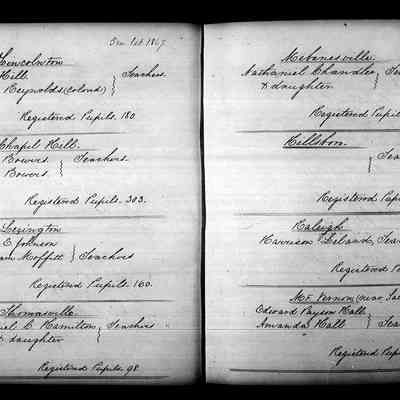 Jan. Feb. 1867.
Lincolnton
Hill.
Reynolds (colored) } Teachers.
Registered Pupils. 180
Chapel Hill.
Bowers
Bowers. } Teachers.
Registered Pupils. 303.
Lexington
E Johnson
Moffitt } Teachers
Registered Pupils. 160.
Thomasville.
C. Hamilton } Teachers
& daughter
Registered Pupils. 98.
Mebanesville.
Nathaniel Chandler
& daughter
Registered
Hillsboro.
Registered
Raleigh
Harrison Leland,
Registered
Mt. Vernon (near
Edward Payson Hall
Amanda Hall
Registered